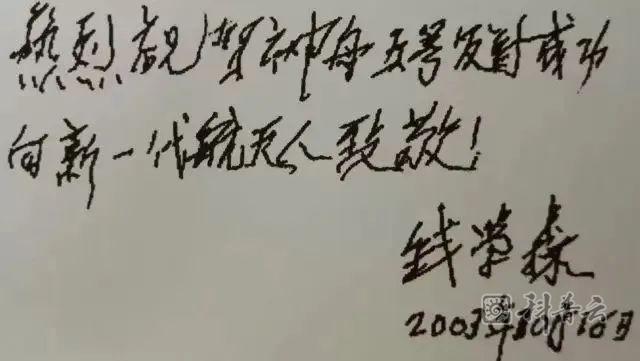 热烈祝贺神舟五号发射成功
向新一代航天人致敬!
钱学森
2003年10月16日
科普云